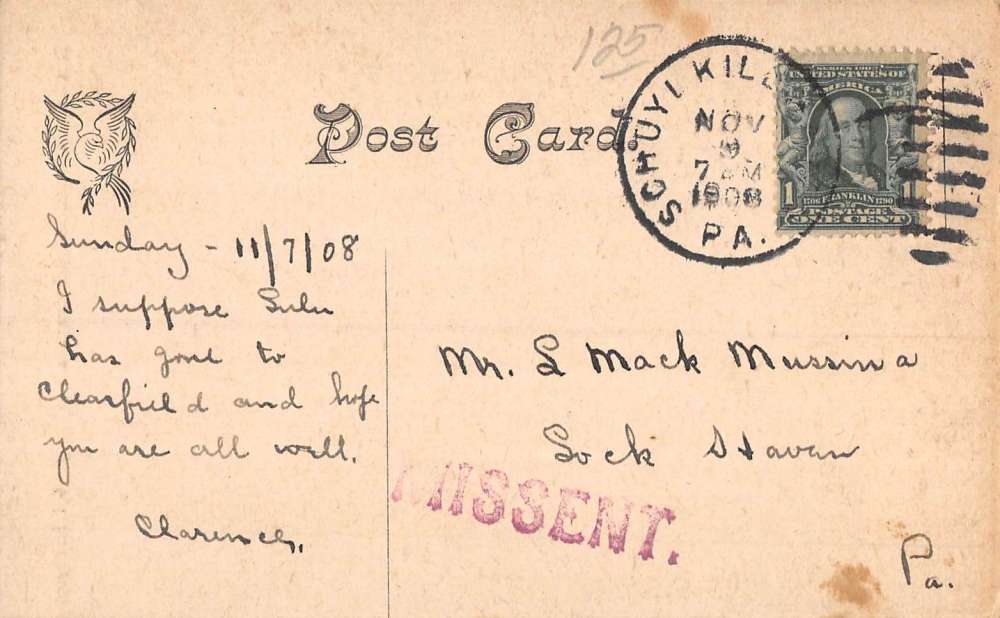 125
Post Card.
SCHUYLKILL
NOV
9
7 AM
1908
PA.
SERIES 1902
UNITED STATES OF
AMERICA
1 1
1706 FRANKLIN 1790
POSTAGE
ONE CENT
Sunday - 11/7/08
I suppose Lulu
has gone to
Clearfield and hope
you are all well.
Clarence.
Mr. L Mack Mussina
Lock Haven
Pa.
MISSENT.